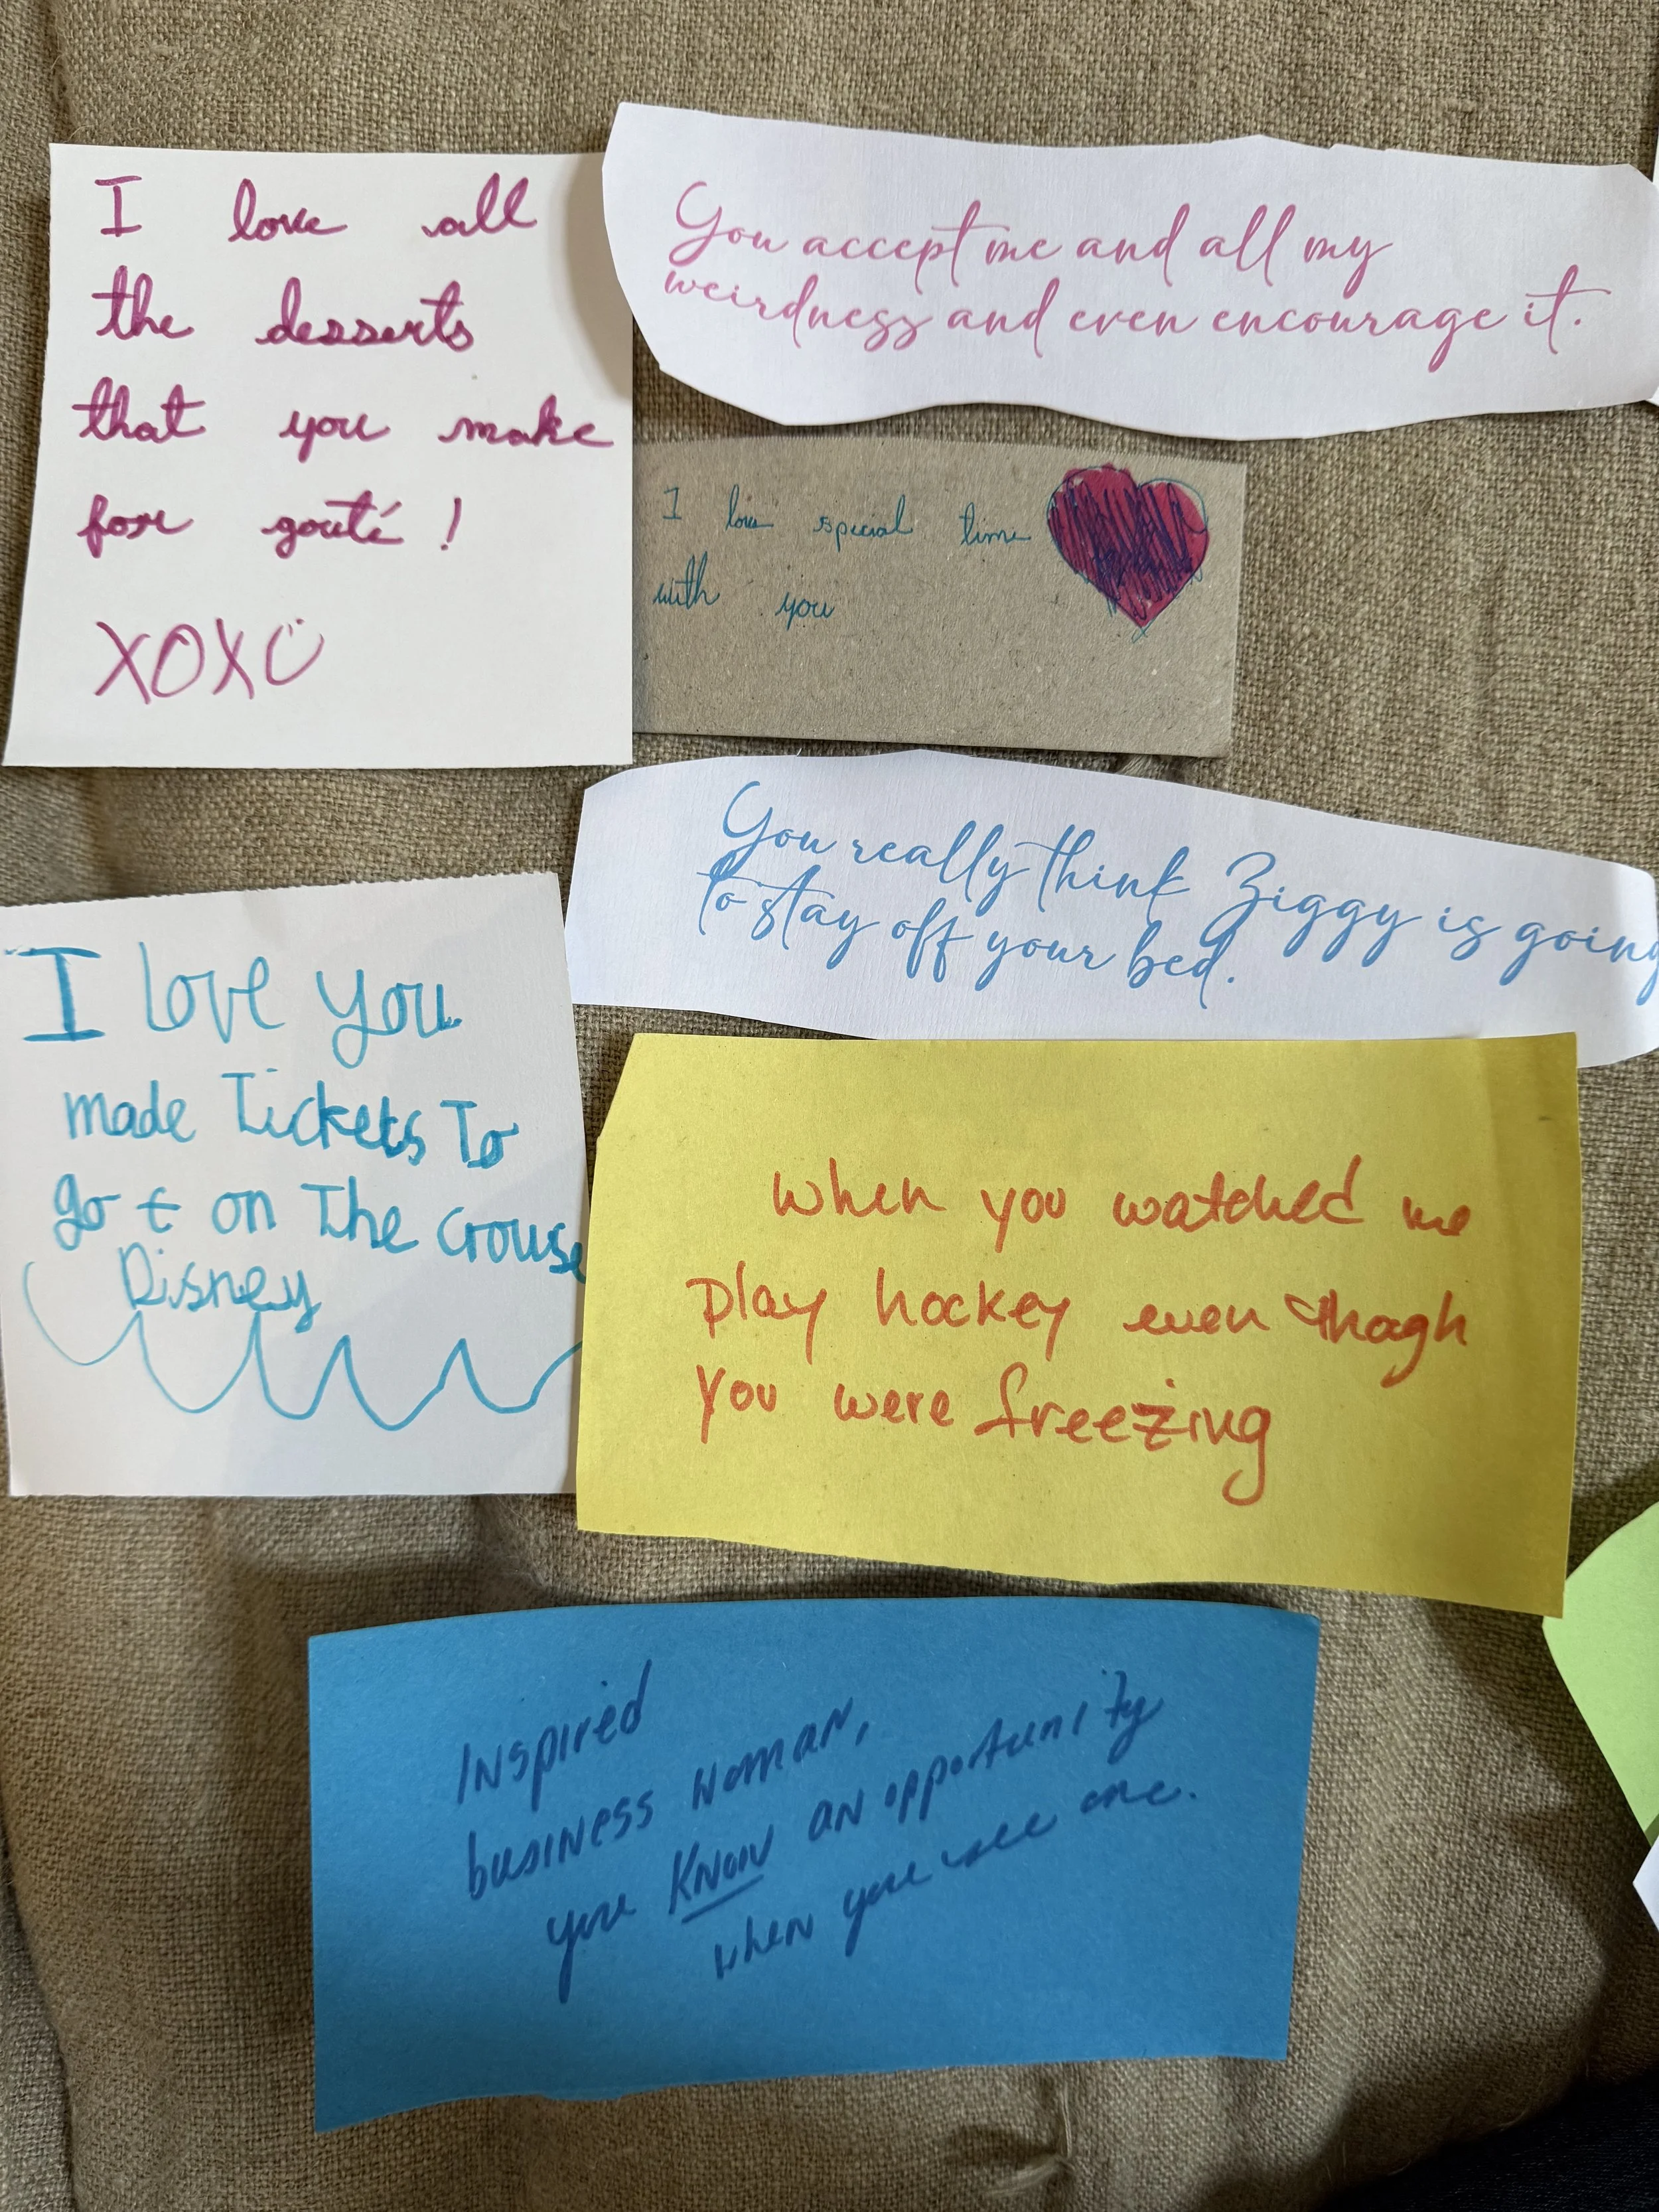 I love all
the desserts
that you make
for gouté !
XOXO
You accept me and all my
weirdness and even encourage it.
I love special time
with you
You really think Ziggy is going
to stay off your bed.
I love you
made Tickets To
go t on The crouse
Disney
when you watched me
play hockey even thoagh
you were freezing
Inspired
business woman,
you know an opportunity
when you see one.